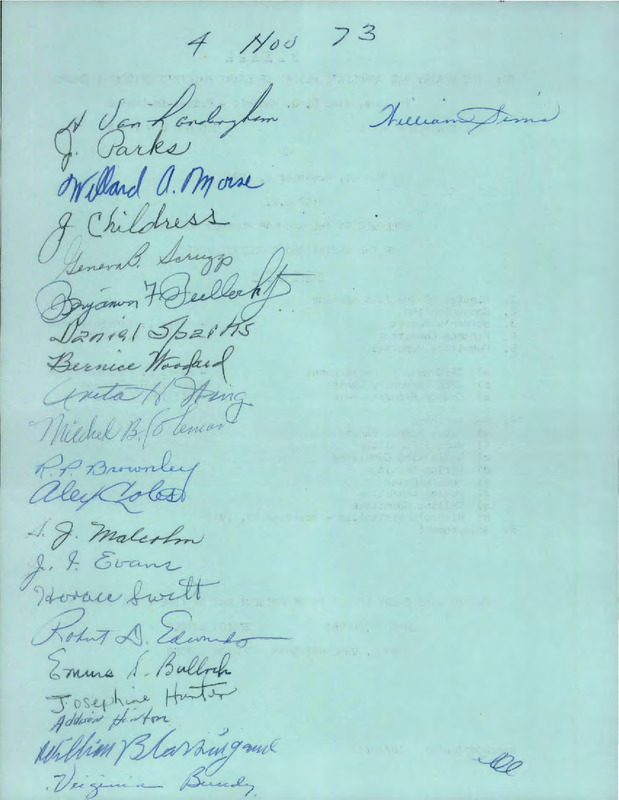 4 Nov 73
H Van Landingham
William Sims
J. Parks
Willard A. Morse
J Childress
Geneva B. Scruggs
Benjamin F Bullock Jr
Daniel Sparks
Bernice Woodard
Anita H. King
Michel B. Coleman
R. P. Brownley
Alex Coles
J. Malcolm
J. I. Evans
Horace Switt
Robert D. Edwards
Emma Bullock
Josephine Hunter
Addison Hinton
William Blassingame
Virginia Bundy